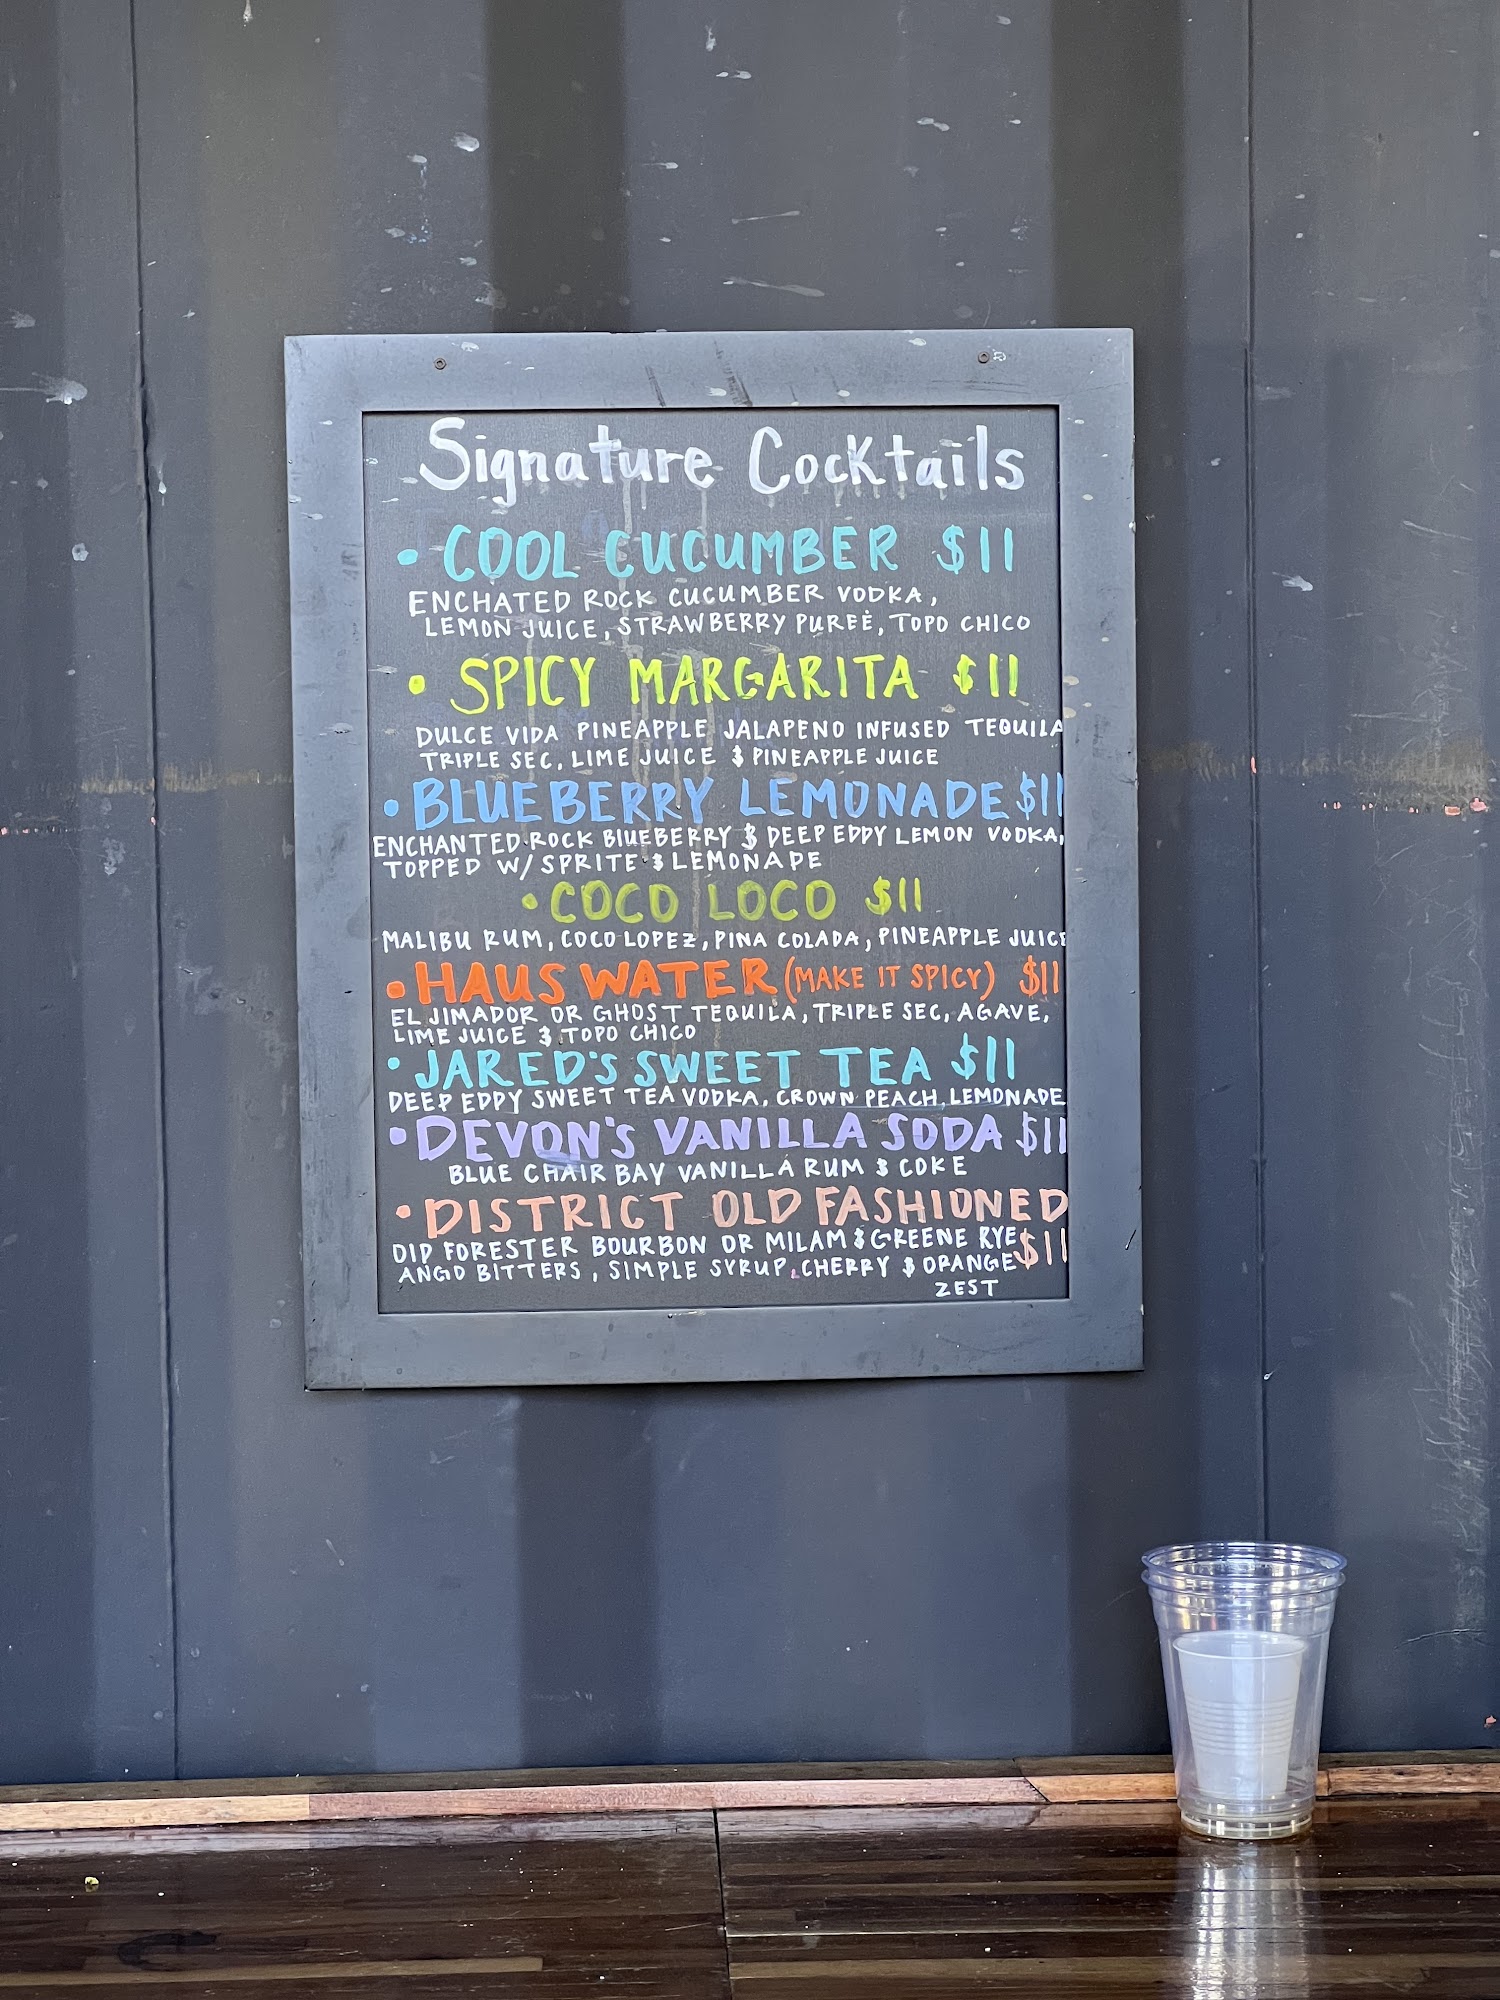 Signature Cocktails
• COOL CUCUMBER $11
ENCHATED ROCK CUCUMBER VODKA,
LEMON JUICE, STRAWBERRY PUREÉ, TOPO CHICO
• SPICY MARGARITA $11
DULCE VIDA PINEAPPLE JALAPENO INFUSED TEQUILA
TRIPLE SEC, LIME JUICE & PINEAPPLE JUICE
• BLUEBERRY LEMONADE $11
ENCHANTED ROCK BLUEBERRY & DEEP EDDY LEMON VODKA,
TOPPED W/ SPRITE & LEMONADE
• COCO LOCO $11
MALIBU RUM, COCO LOPEZ, PINA COLADA, PINEAPPLE JUICE
• HAUS WATER (MAKE IT SPICY) $11
EL JIMADOR OR GHOST TEQUILA, TRIPLE SEC, AGAVE,
LIME JUICE & TOPO CHICO
• JARED'S SWEET TEA $11
DEEP EDDY SWEET TEA VODKA, CROWN PEACH, LEMONADE
• DEVON'S VANILLA SODA $11
BLUE CHAIR BAY VANILLA RUM & COKE
• DISTRICT OLD FASHIONED
OLD FORESTER BOURBON OR MILAM & GREENE RYE, $11
ANGO BITTERS, SIMPLE SYRUP, CHERRY & ORANGE
ZEST